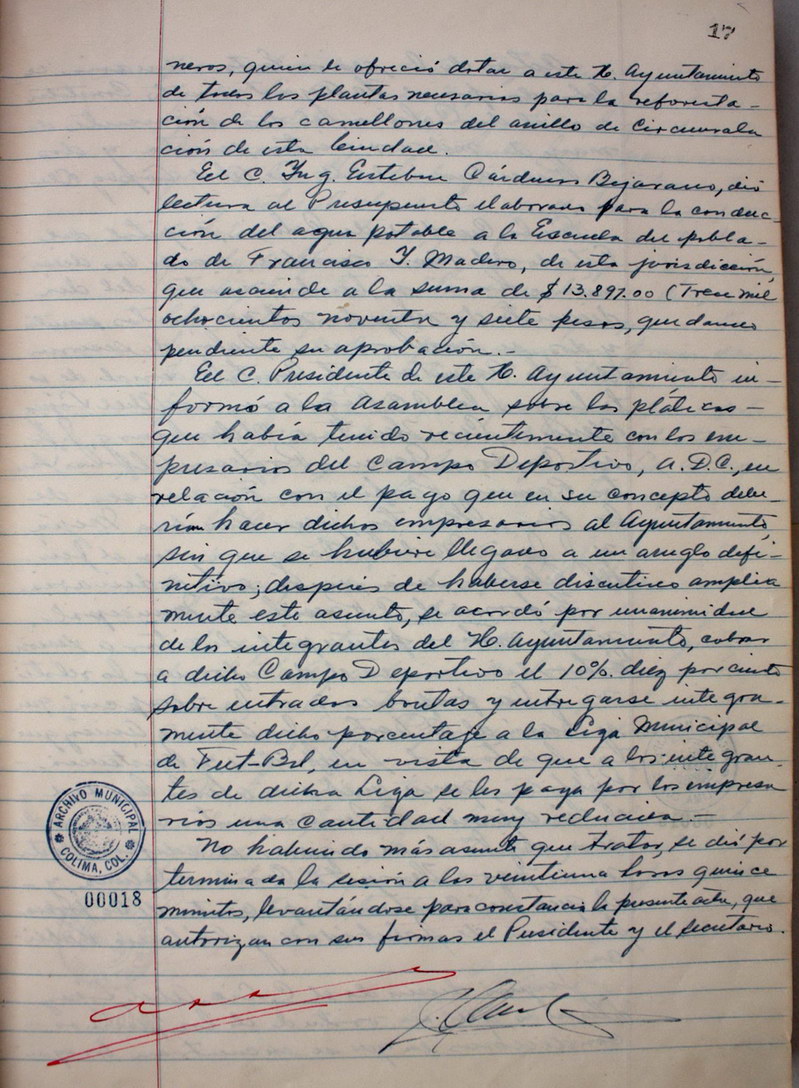 17
neros, quien le ofreció dotar a este H. Ayuntamiento
de todas las plantas necesarias para la reforesta-
ción de los camellones del anillo de Circunvala
ción de esta Ciudad.
El C. Ing. Esteban Cárdenas Bejarano, dió
lectura al Presupuesto elaborado para la conduc-
ción del agua potable a la Escuela del pobla-
do de Francisco I. Madero, de esta jurisdicción,
que asciende a la suma de $13.897.00 (Trece mil
ochocientos noventa y siete pesos, quedando
pendiente su aprobación.-
El C. Presidente de este H. Ayuntamiento in-
formó a la asamblea sobre las pláticas-
que había tenido recientemente con los em-
presarios del Campo Deportivo, A.D.C., en
relación con el pago que en su concepto debe-
rían hacer dichos empresarios al Ayuntamiento,
sin que se hubiere llegado a un arreglo defi-
nitivo; después de haberse discutido amplia
mente este asunto, se acordó por unanimidad
de los integrantes del H. Ayuntamiento, cobrar
a dicho Campo Deportivo el 10%. diez por ciento
sobre entradas brutas y entregarse integra-
mente dicho porcentaje a la Liga Municipal
de Fut-Bol, en vista de que a los integran-
tes de dicha Liga se les paga por los empresa
rios una cantidad muy reducida.-
No habiendo más asunto que tratar, se dió por
terminada la sesión a las veintiuna horas quince
minutos, levantándose para constancia la presente acta, que
autorizan con sus firmas el Presidente y el Secretario.
ARCHIVO MUNICIPAL
COLIMA, COL.
00018